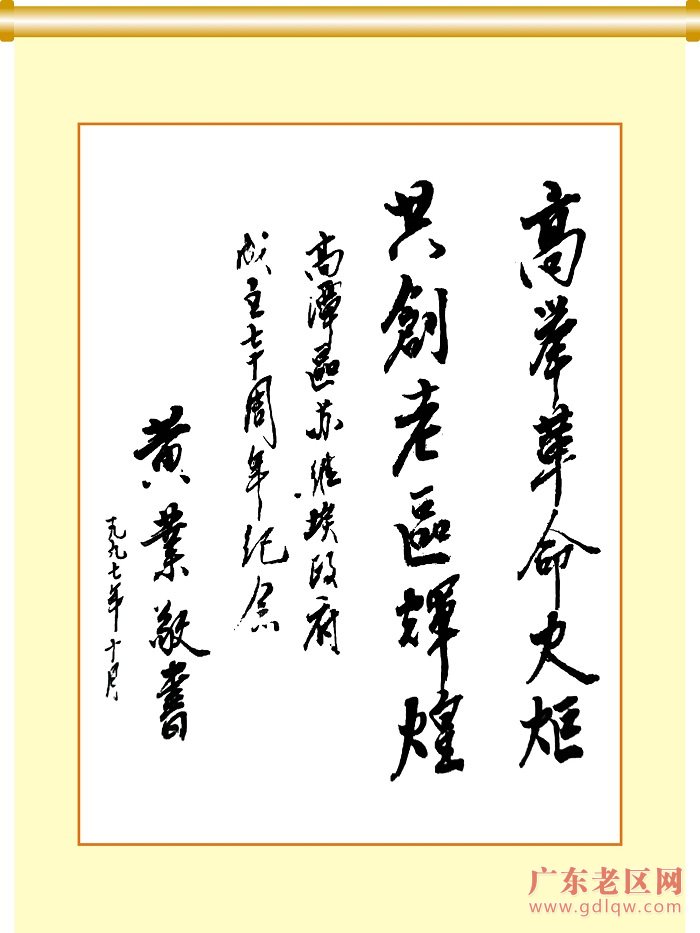 高举革命火炬
共創老區輝煌
高潭區苏維埃政府
成立七十周年纪念
黄業敬書
一九九七年十月
广东老区网
www.gdlqw.com